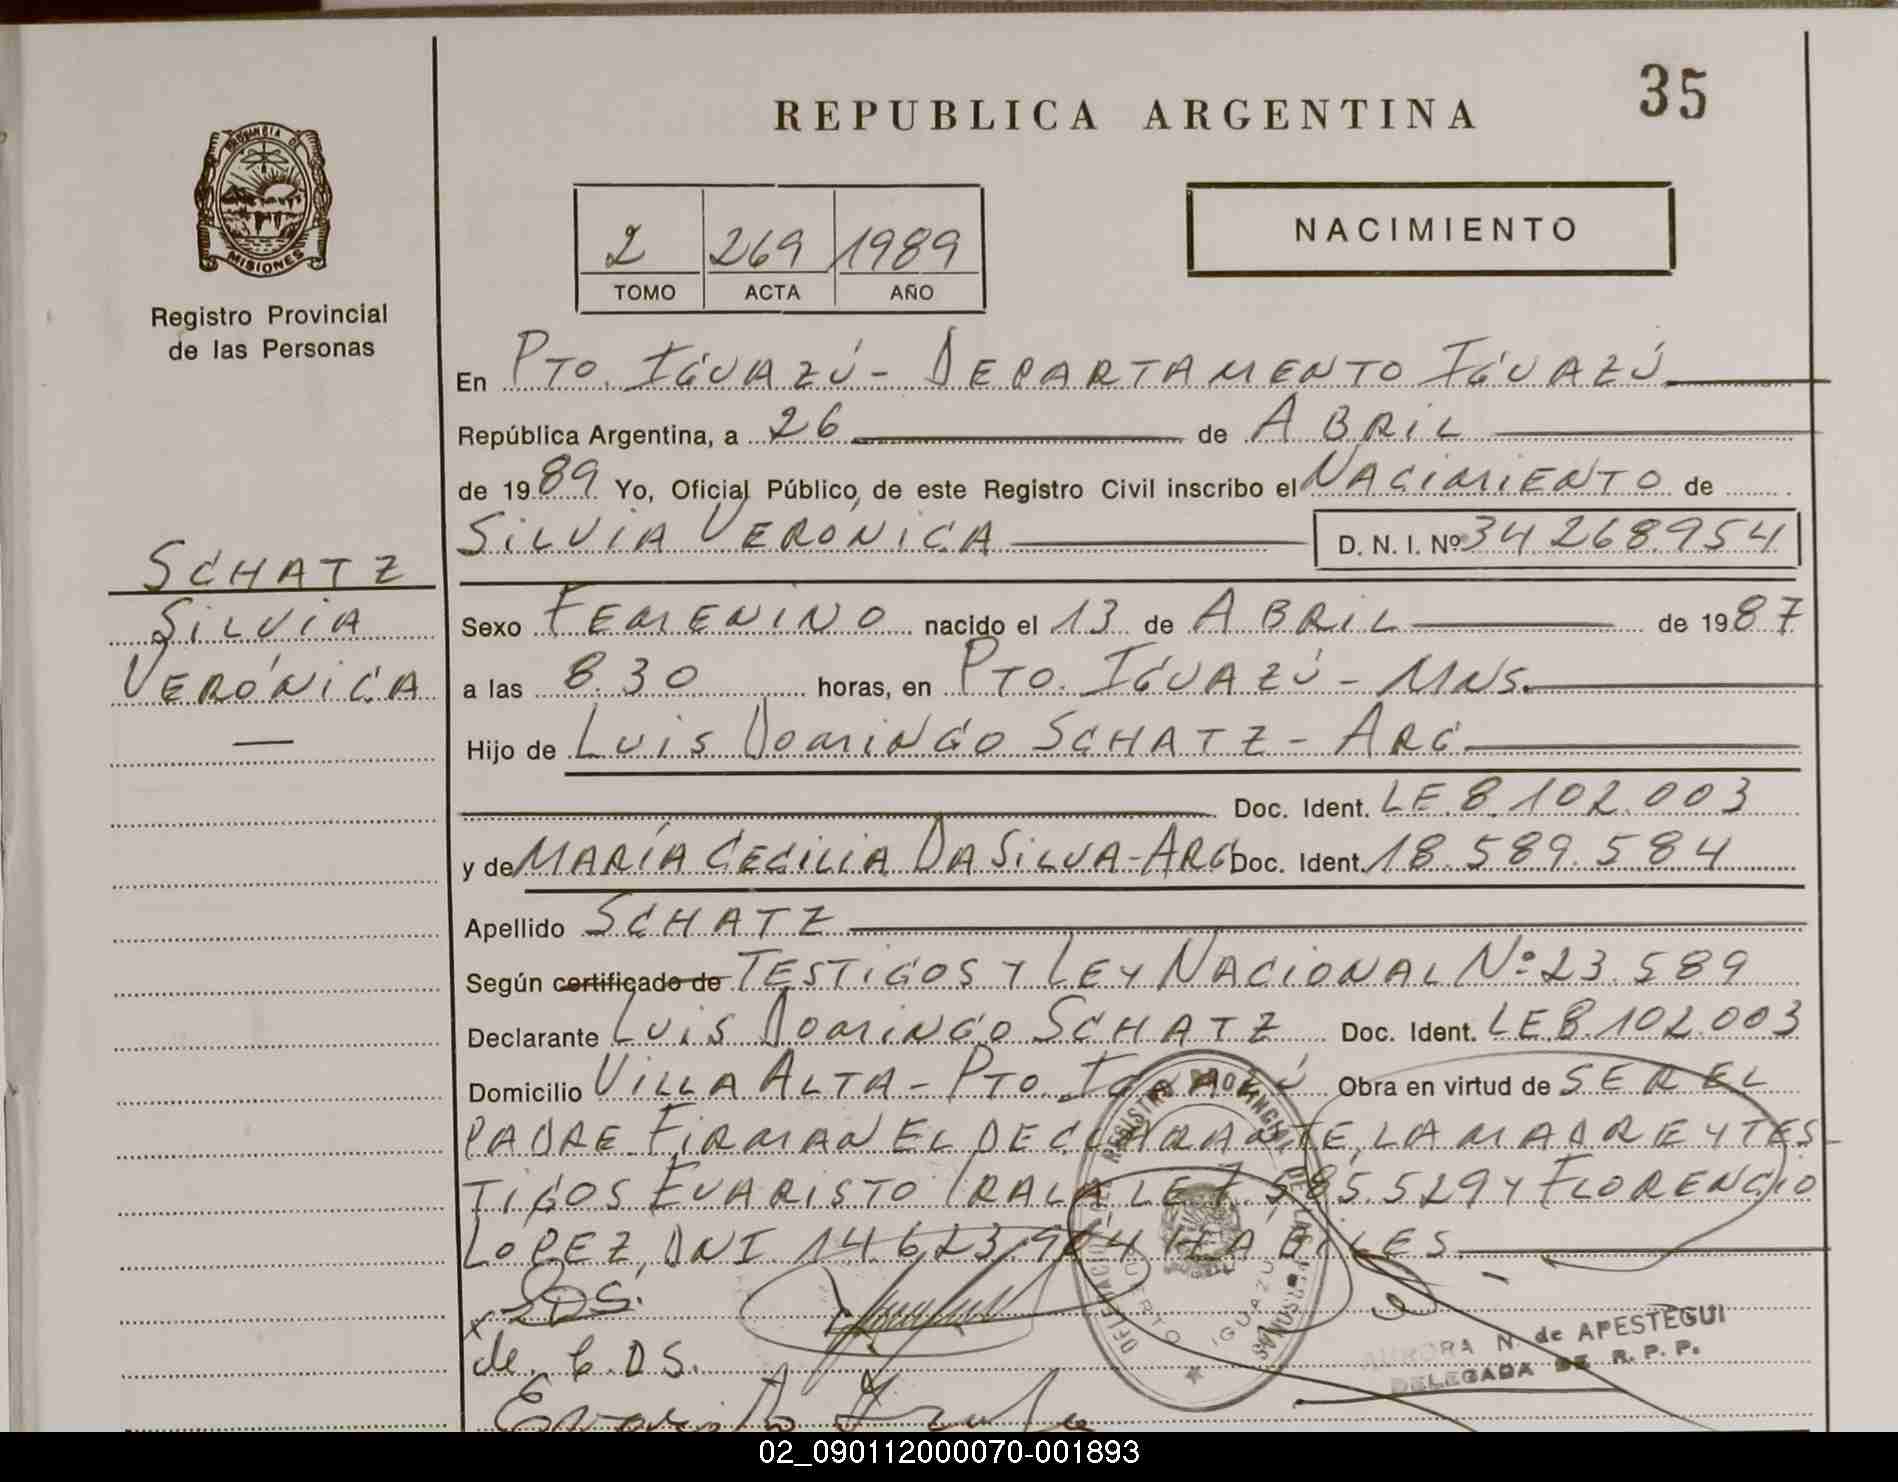 35
REPUBLICA ARGENTINA
PROVINCIA DE
MISIONES
Registro Provincial
de las Personas
2 269 1989
TOMO ACTA AÑO
NACIMIENTO
En PTO. IGUAZÚ - DEPARTAMENTO IGUAZÚ
República Argentina, a 26 de ABRIL
de 1989 Yo, Oficial Público, de este Registro Civil inscribo el NACIMIENTO de
SILVIA VERÓNICA D. N. I. Nº 34 268.954
SCHATZ
SILVIA
VERÓNICA
Sexo FEMENINO nacido el 13 de ABRIL de 1987
a las 8.30 horas, en PTO. IGUAZÚ - MNS.
Hijo de LUIS DOMINGO SCHATZ - ARG
Doc. Ident. LE 8.102.003
y de MARÍA CECILIA DA SILVA - ARG Doc. Ident. 18.589.584
Apellido SCHATZ
Según certificado de TESTIGOS Y LEY NACIONAL Nº 23.589
Declarante LUIS DOMINGO SCHATZ Doc. Ident. LE 8.102.003
Domicilio VILLA ALTA - PTO. IGUAZÚ Obra en virtud de SER EL
PADRE FIRMAN EL DECLARANTE, LA MADRE Y TES-
TIGOS EVARISTO IRALA LE 7.585.529 Y FLORENCIO
LOPEZ, DNI 14.623.904 HÁBILES.
DS.
de. C. D S.
REGISTRO PROVINCIAL DE LAS PERSONAS
DELEGACION
PUERTO IGUAZU
AURORA N. de APESTEGUI
DELEGADA DE R. P. P.
Evaristo Irala
02_090112000070-001893